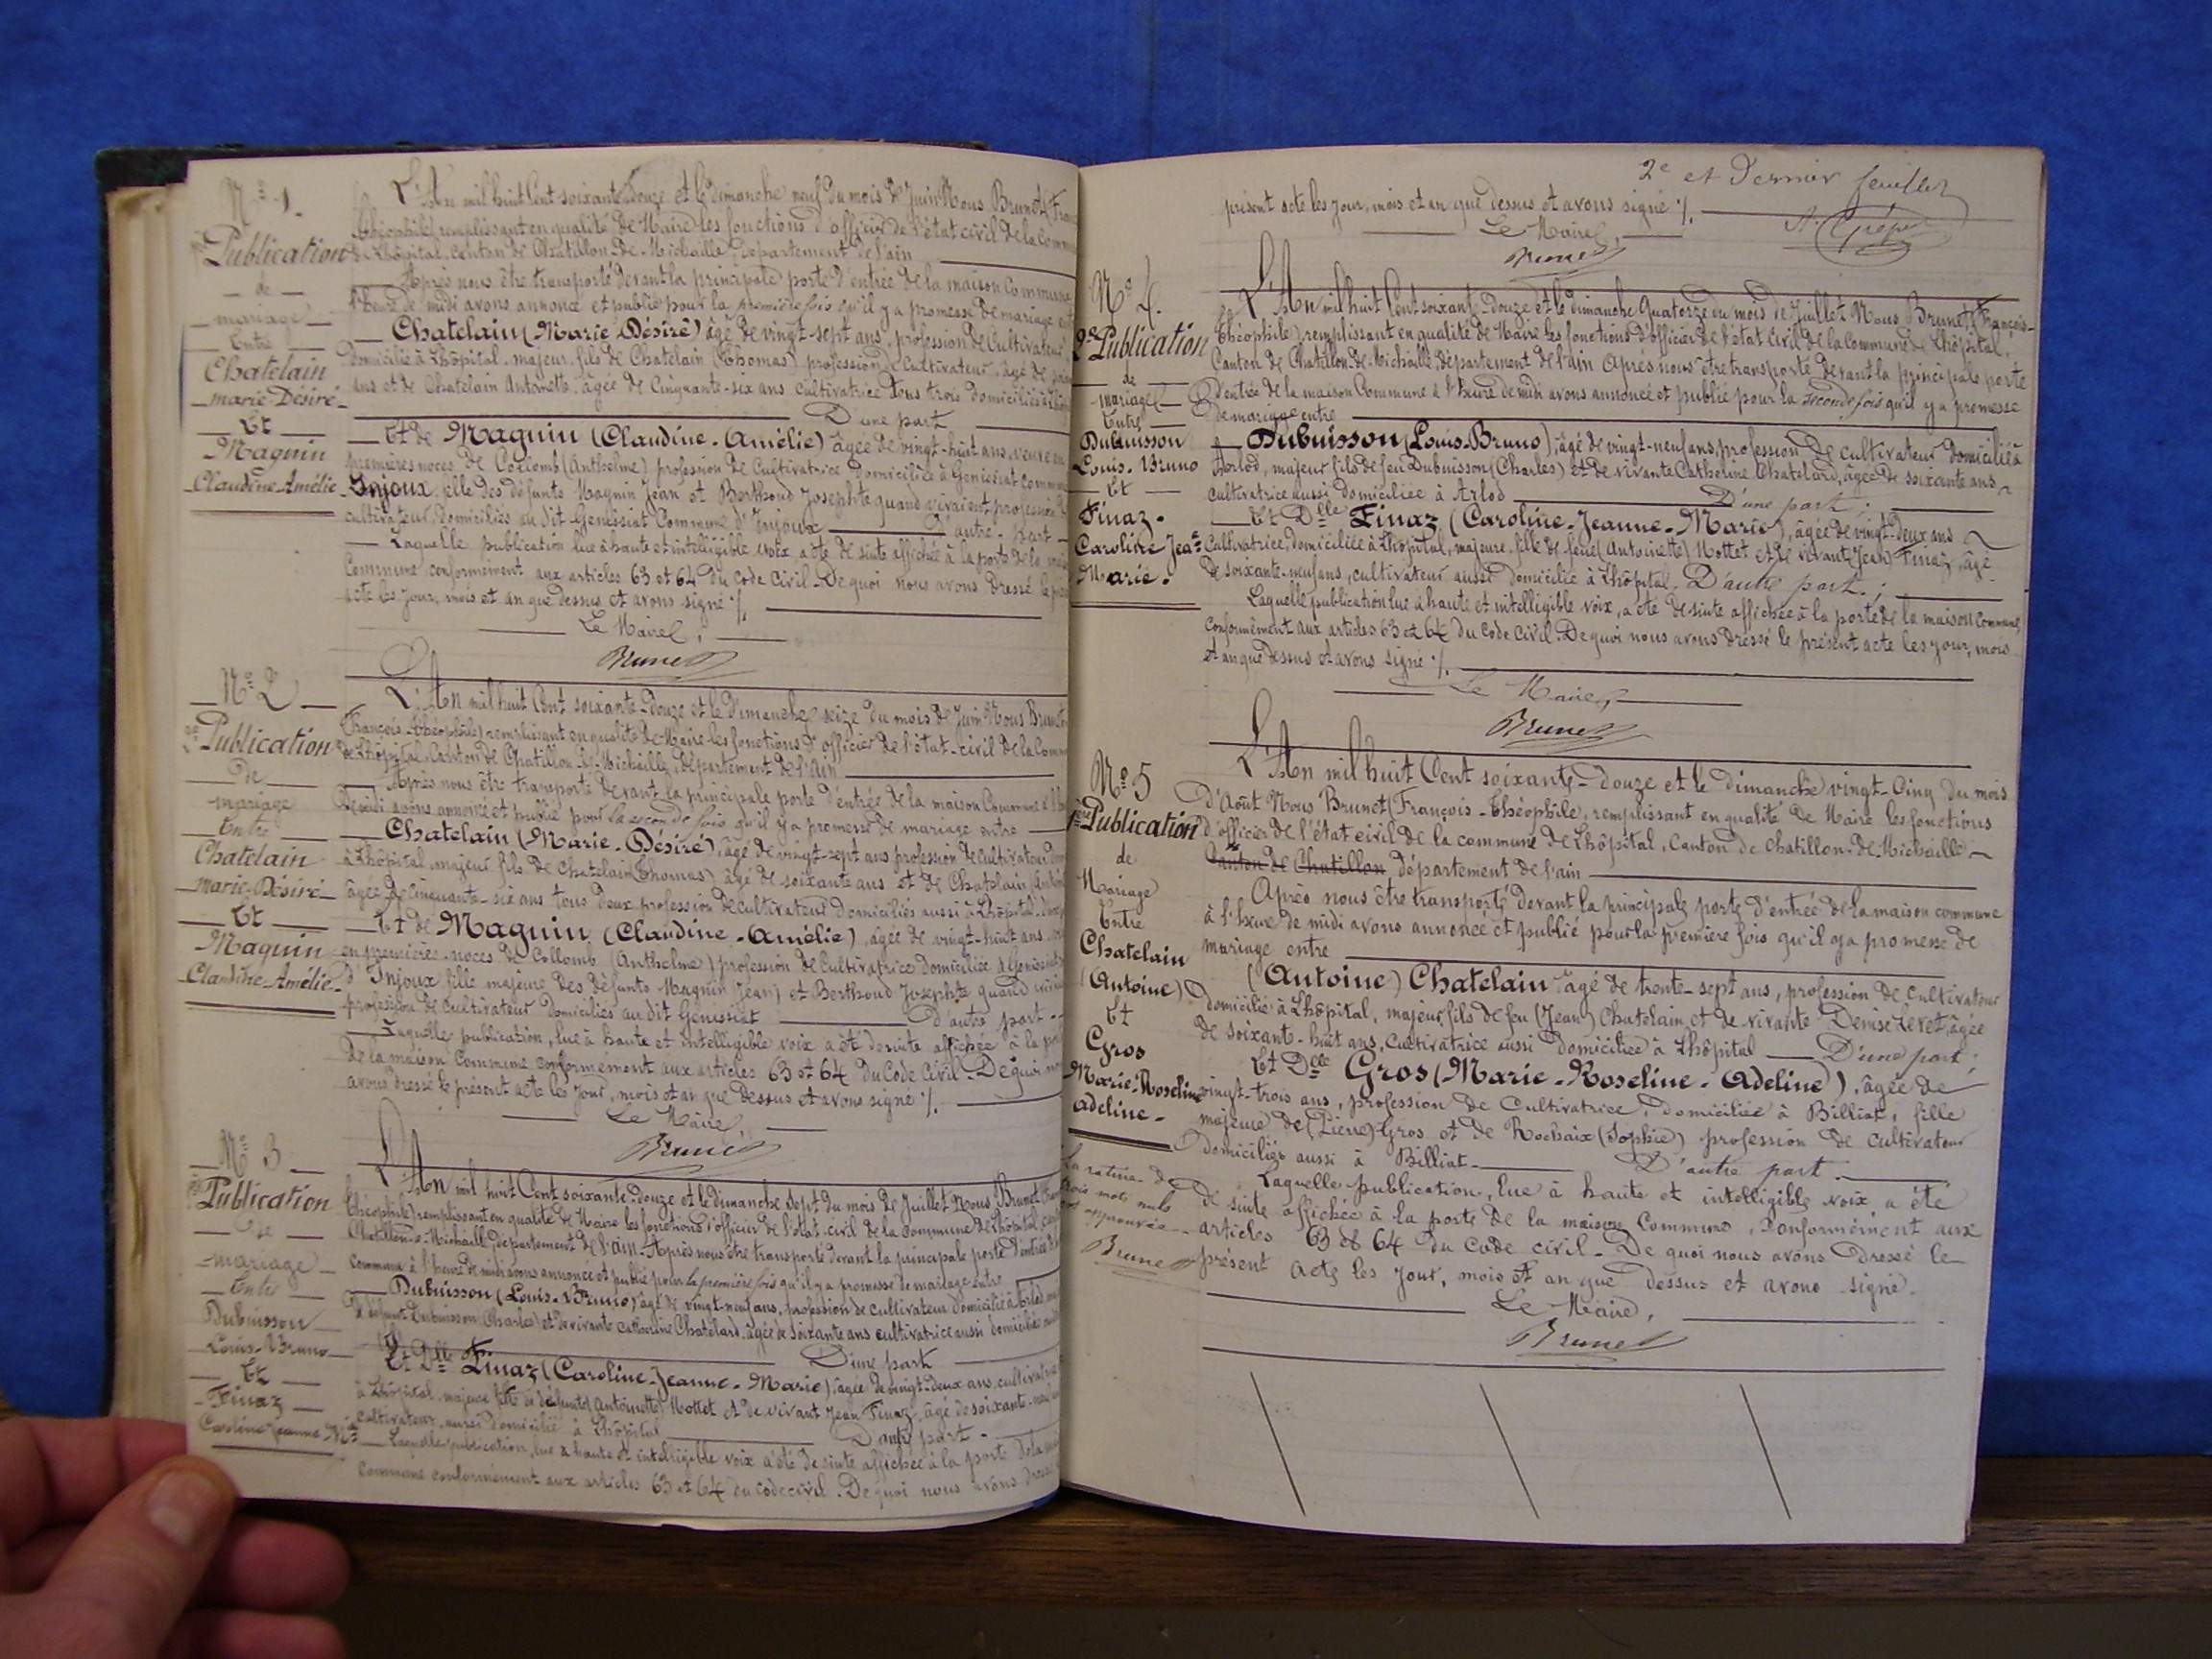 N° 1.
Publication
de
mariage
Entre
Chatelain
marie-Désiré
Et
Maguin
Claudine-Amélie
L'An mil huit Cent soixante-douze et le dimanche neuf du mois de Juin Nous Brunet
Théophile) remplissant en qualité de Maire les fonctions d'officier de l'état civil de la
de Lhôpital, canton de Chatillon-de-Michaille, département de l'ain
Après nous être transporté devant la principale porte d'entrée de la maison Commune
l'heure de midi avons annoncé et publié pour la première fois qu'il y a promesse de mariage
Chatelain (Marie-Désiré) âgé de vingt-sept ans, profession de Cultivateur
domicilié à Lhôpital, majeur, fils de Chatelain (Thomas) profession Cultivateur, âgé de
ans et de Chatelain Antoinette, âgée de Cinquante-six ans cultivatrice tous trois domiciliés à
D'une part
Et de Maguin (Claudine-Amélie) âgée de vingt-huit ans, veuve en
premières noces de Collomb (Anthelme) profession de Cultivatrice domiciliée à Genissiat
Injoux, fille des défunts Maguin Jean et Berthoud Josephte quand vivaient profession
cultivateur, domiciliés au dit Genissiat Commune d'Injoux D'autre-part
Laquelle publication lue à haute et intelligible voix a été de suite affichée à la porte de la
Commune conformément aux articles 63 et 64 du code civil. De quoi nous avons dressé le
acte les jour, mois et an que dessus et avons signé ./.
Le Maire,
Brunet
N° 2
2e Publication
De
mariage
Entre
Chatelain
marie-Désiré
Et
Maguin
Claudine-Amélie
L'An mil huit Cent soixante-douze et le Dimanche seize du mois de Juin Nous Brunet
François-Théophile) remplissant en qualité de Maire les fonctions d'officier de l'état-civil de la
de Lhôpital, Canton de Chatillon-de-Michaille, département de l'Ain
Après nous être transporté devant la principale porte d'entrée de la maison Commune à
De midi avons annoncé et publié pour la seconde fois qu'il y a promesse de mariage entre
Chatelain (Marie-Désiré), âgé de vingt-sept ans profession de Cultivateur
à Lhôpital, majeur fils de Chatelain (Thomas) âgé de soixante ans et de Chatelain
âgée de Cinquante-six ans tous deux profession de cultivateur domiciliés aussi à Lhôpital
Et de Maguin (Claudine-Amélie), âgée de vingt-huit ans
en première-noces de Collomb (Anthelme) profession de Cultivatrice domiciliée à
d'Injoux fille majeure des défunts Maguin Jean) et Berthoud Josephte quand
profession de Cultivateur Domiciliés au dit Genissiat D'autre part.
Laquelle publication, lue à haute et intelligible voix a été de suite affichée à la
De la maison Commune conformément aux articles 63 et 64 du Code Civil. De quoi
avons dressé le présent acte les jour, mois et an que Dessus et avons signé ./.
Le Maire,
Brunet
N° 3
Publication
de
mariage
Entre
Dubuisson
Louis-Bruno
Et
Finaz
Caroline Jeanne
L'An mil huit Cent soixante-douze et le dimanche sept du mois de Juillet Nous Brunet
Théophile) remplissant en qualité de Maire les fonctions d'officier de l'état civil de la Commune de Lhôpital,
Chatillon-de-Michaille, département de l'Ain. Après nous être transporté devant la principale porte d'entrée
Commune à l'heure de midi avons annoncé et publié pour la première fois qu'il y a promesse de mariage entre
Dubuisson (Louis-Bruno) âgé de vingt-neuf ans, profession de cultivateur domicilié à Arlod
Dubuisson Charles) et de vivante Catherine Chatelard, âgée de soixante ans cultivatrice aussi domiciliée
D'une part
Et Dlle Finaz (Caroline-Jeanne-Marie), âgée de vingt-deux ans, cultivatrice
à Lhôpital, majeure fille de défunte (Antoinette) Mottet et de vivant Jean Finaz, âgé de soixante-neuf
Cultivateur, aussi domicilié à Lhôpital D'autre part.
Laquelle publication, lue à haute et intelligible voix a été de suite affichée à la porte de la
Commune conformément aux articles 63 et 64 du code civil. De quoi nous avons dressé
2e et Dernier feuillet
présent acte les jour, mois et an que dessus et avons signé ./.
Le Maire,
Brunet
N° 4.
2e Publication
de
mariage
Entre
Dubuisson
Louis-Bruno
Et
Finaz-
Caroline Jeane
Marie.
L'An mil huit Cent soixante-douze et le dimanche Quatorze du mois de Juillet Nous Brunet (François-
Théophile) remplissant en qualité de Maire les fonctions d'officier de l'état civil de la Commune de Lhôpital,
Canton de Chatillon-de-Michaille, département de l'ain. Après nous être transporté devant la principale porte
D'entrée de la maison Commune à l'heure de midi avons annoncé et publié pour la seconde fois qu'il y a promesse
De mariage entre
Dubuisson (Louis-Bruno), âgé de vingt-neuf ans, profession de cultivateur domicilié à
Arlod, majeur fils de feu Dubuisson (Charles) et de vivante Catherine Chatelard, âgée de soixante ans
cultivatrice aussi domiciliée à Arlod D'une part;
Et Dlle Finaz (Caroline-Jeanne-Marie), âgée de vingt-deux ans
Cultivatrice, domiciliée à Lhôpital, majeure-fille de feue (Antoinette) Mottet et de vivant (Jean) Finaz, âgé
de soixante-neuf ans, cultivateur aussi domicilié à Lhôpital. D'autre part.;
Laquelle publication lue à haute et intelligible voix, a été de suite affichée à la porte de la maison Commune,
Conformément aux articles 63 et 64 du Code Civil. De quoi nous avons dressé le présent acte les jour, mois
et an que dessus et avons signé ./.
Le Maire,
Brunet
N° 5
1ère Publication
de
Mariage
Entre
Chatelain
(Antoine)
Et
Gros
Marie-Roseline
Adeline-
L'An mil huit Cent soixante-douze et le dimanche vingt-Cinq du mois
d'Août Nous Brunet (François-Théophile, remplissant en qualité de Maire les fonctions
d'officier de l'état civil de la commune de Lhôpital, Canton de Chatillon-de-Michaille
Canton de Chatillon département de l'ain
Après nous être transporté devant la principale porte d'entrée de la maison commune
à l'heure de midi avons annoncé et publié pour la première fois qu'il y a promesse de
mariage entre
(Antoine) Chatelain âgé de trente-sept ans, profession de cultivateur
domicilié à Lhôpital, majeur, fils de feu (Jean) Chatelain et de vivante Denise Levet, âgée
de soixante-huit ans, cultivatrice aussi domiciliée à Lhôpital D'une part;
Et Dlle Gros (Marie-Roseline-Adeline), âgée de
vingt-trois ans, profession de Cultivatrice, domiciliée à Billiat, fille
majeure de (Pierre) Gros et de Rochaix (Sophie) profession de cultivateur
domiciliés aussi à Billiat- D'autre part.
Laquelle publication, lue à haute et intelligible voix, a été
de suite affichée à la porte de la maison Commune, Conformément aux
articles 63 et 64 du Code civil. De quoi nous avons Dressé le
présent acte les jour, mois et an que dessus et avons signé.
Le Maire,
Brunet
La rature de
trois mots nuls
approuvée
Brunet